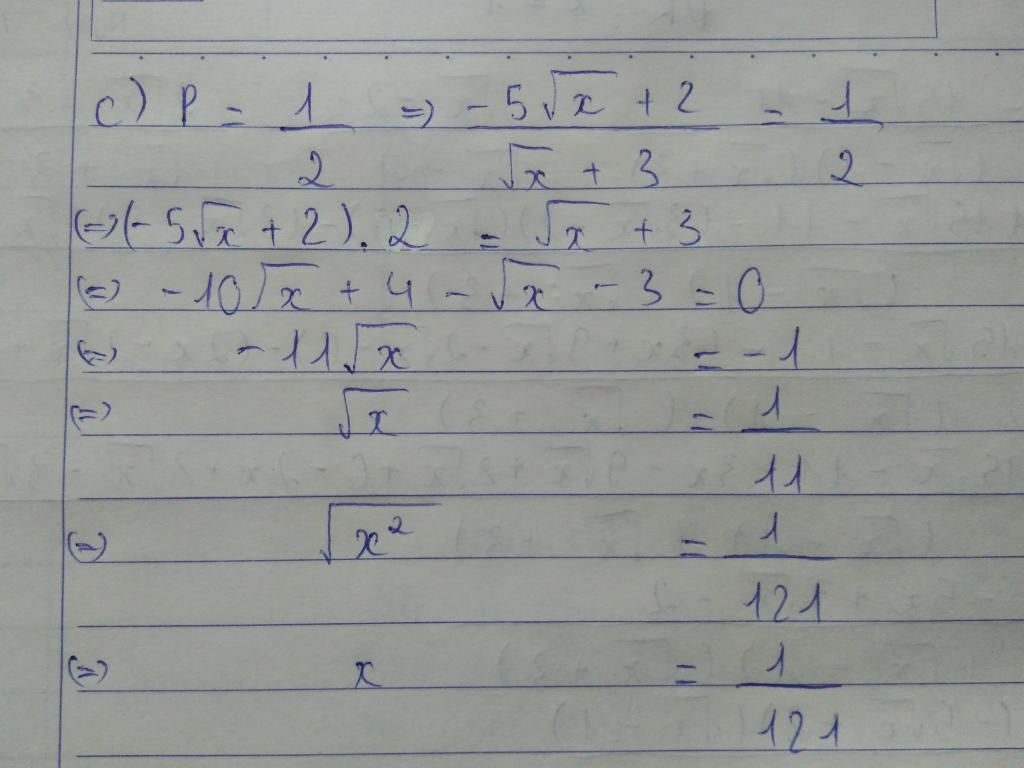 c) P = 1/2 => (-5√x + 2)/(√x + 3) = 1/2
(=) (-5√x + 2).2 = √x + 3
(=) -10√x + 4 - √x - 3 = 0
(=) -11√x = -1
(=) √x = 1/11
(=) √x² = 1/121
(=) x = 1/121